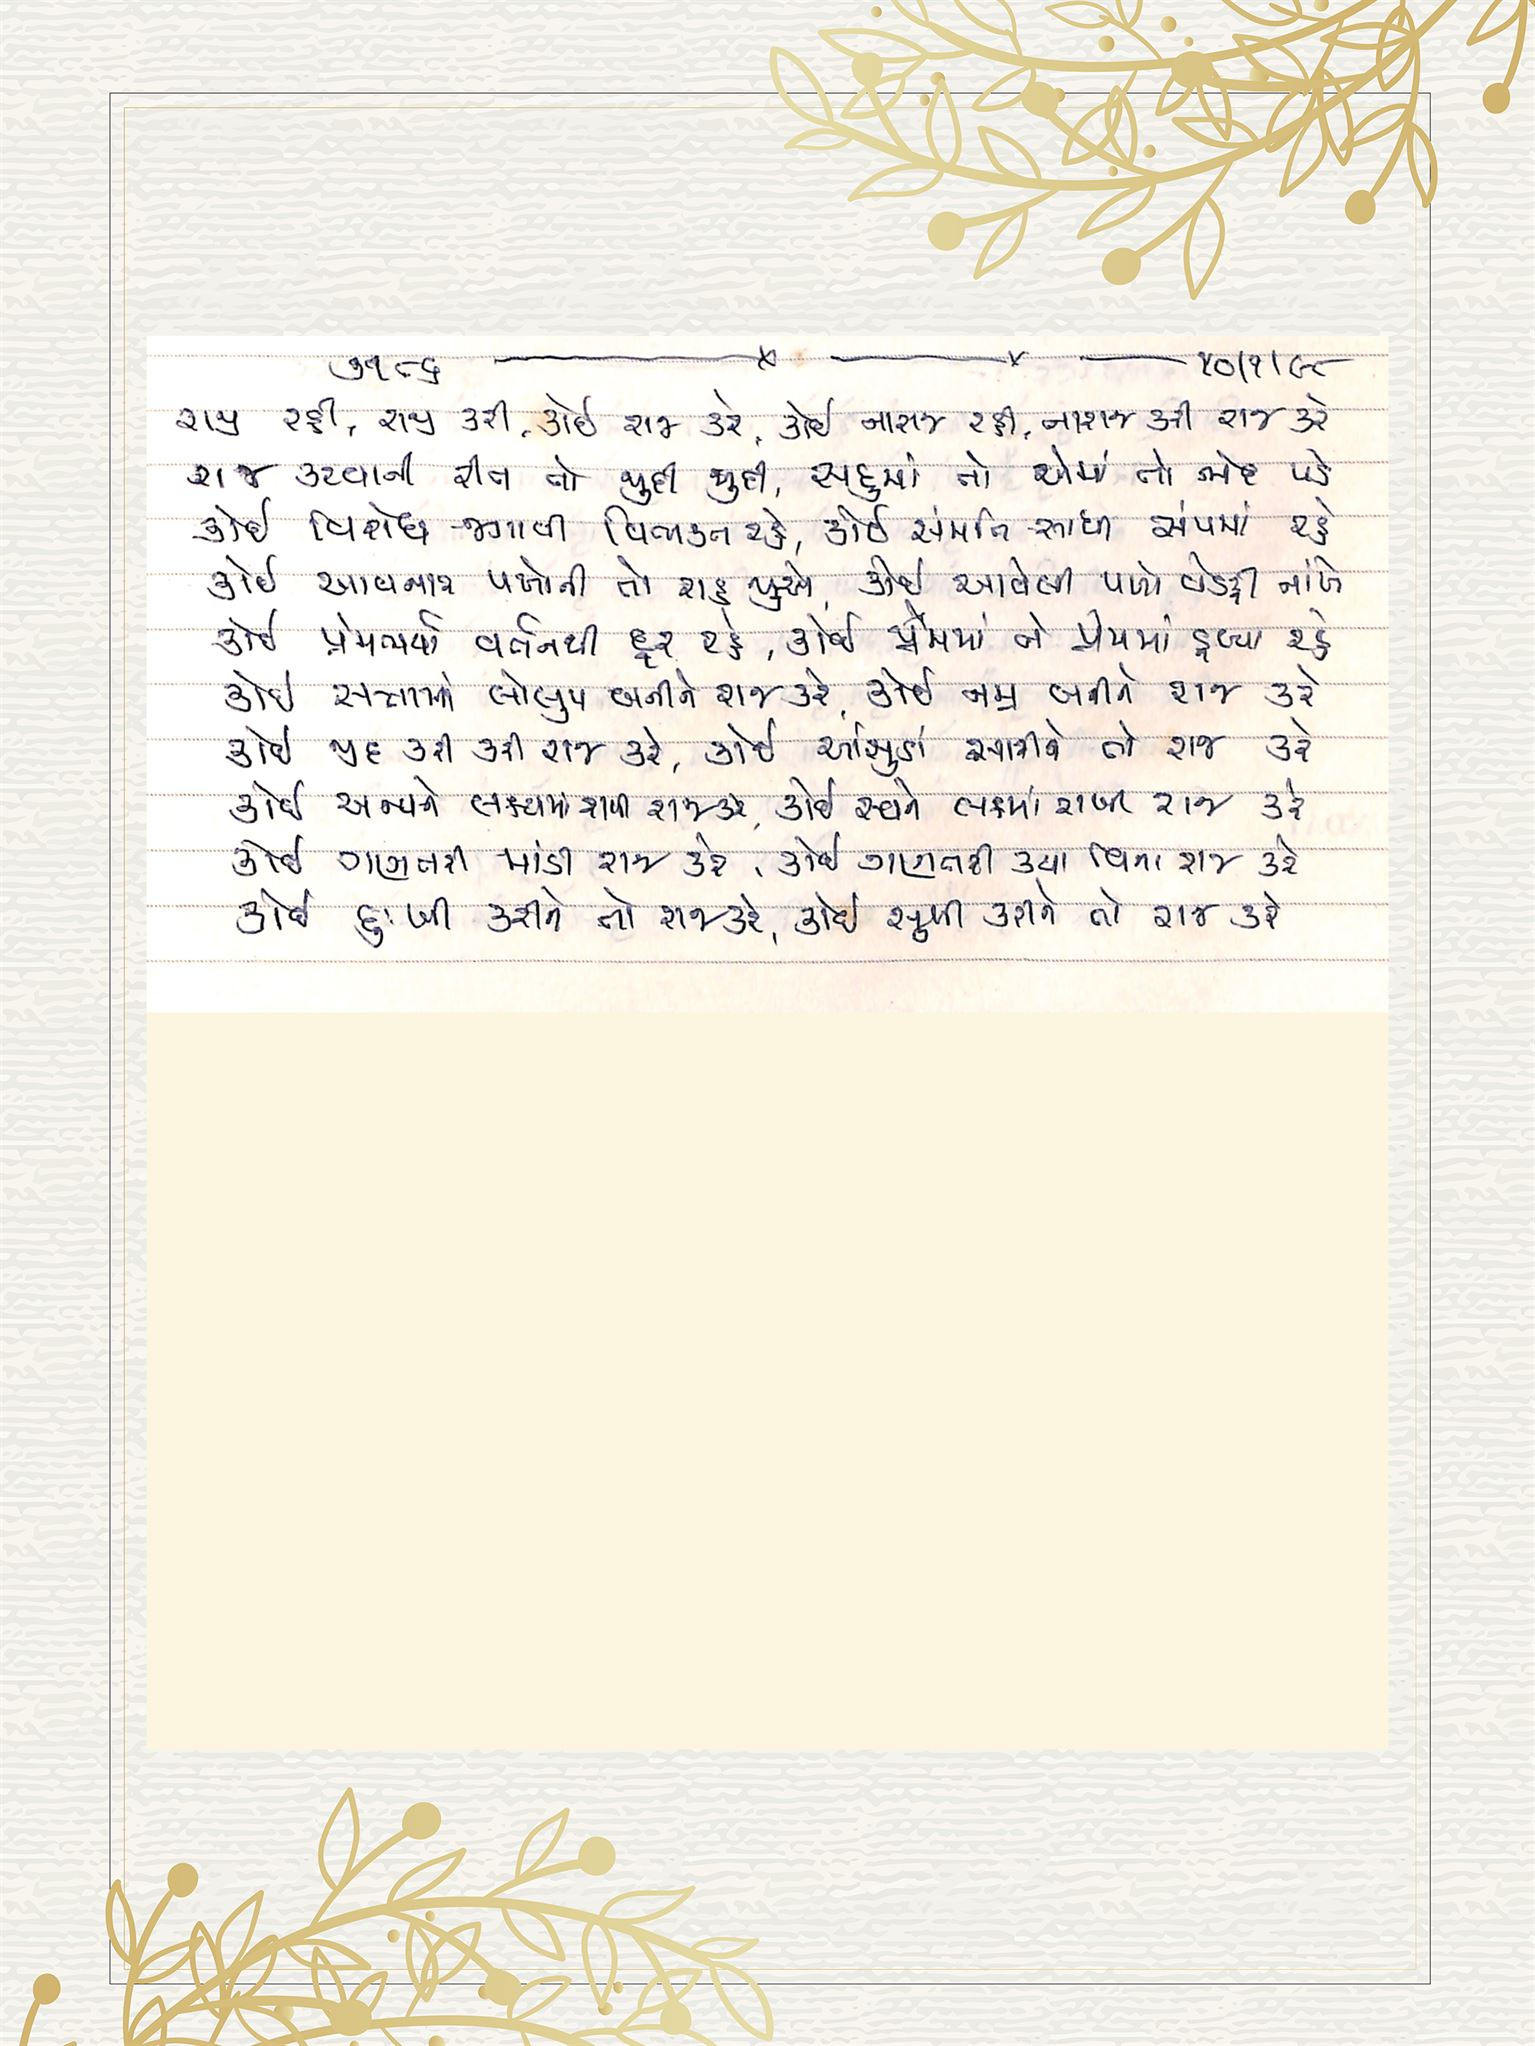 ૭૧૮૬ ૨૦/૧/૯૮
રાજી રહી, રાજી કરી, કોઈ રાજ કરે, કોઈ નારાજ રહી, નારાજ કરી રાજ કરે
રાજ કરવાની રીત તો જુદી જુદી, સહુમાં તો એમાં તો ભેદ પડે
કોઈ વિરોધ જગાવી વિભક્ત રહે, કોઈ સંમતિ સાધી સંપમાં રહે
કોઈ આવનાર પળોની તો રાહ જુએ, કોઈ આવેલી પળો વેડફી નાંખે
કોઈ પ્રેમભર્યા વર્તનથી દૂર રહે, કોઈ પ્રેમમાં ને પ્રેમમાં ડૂબ્યા રહે
કોઈ સત્તામાં લોલુપ બનીને રાજ કરે, કોઈ નમ્ર બનીને રાજ કરે
કોઈ જીદ કરી કરી રાજ કરે, કોઈ આંસુડાં સારીને તો રાજ કરે
કોઈ અન્યને લક્ષ્યમાં રાખી રાજ કરે, કોઈ સ્વને લક્ષમાં રાખી રાજ કરે
કોઈ ગણતરી માંડી રાજ કરે, કોઈ ગણતરી કર્યા વિના રાજ કરે
કોઈ દુઃખી કરીને તો રાજ કરે, કોઈ સુખી કરીને તો રાજ કરે